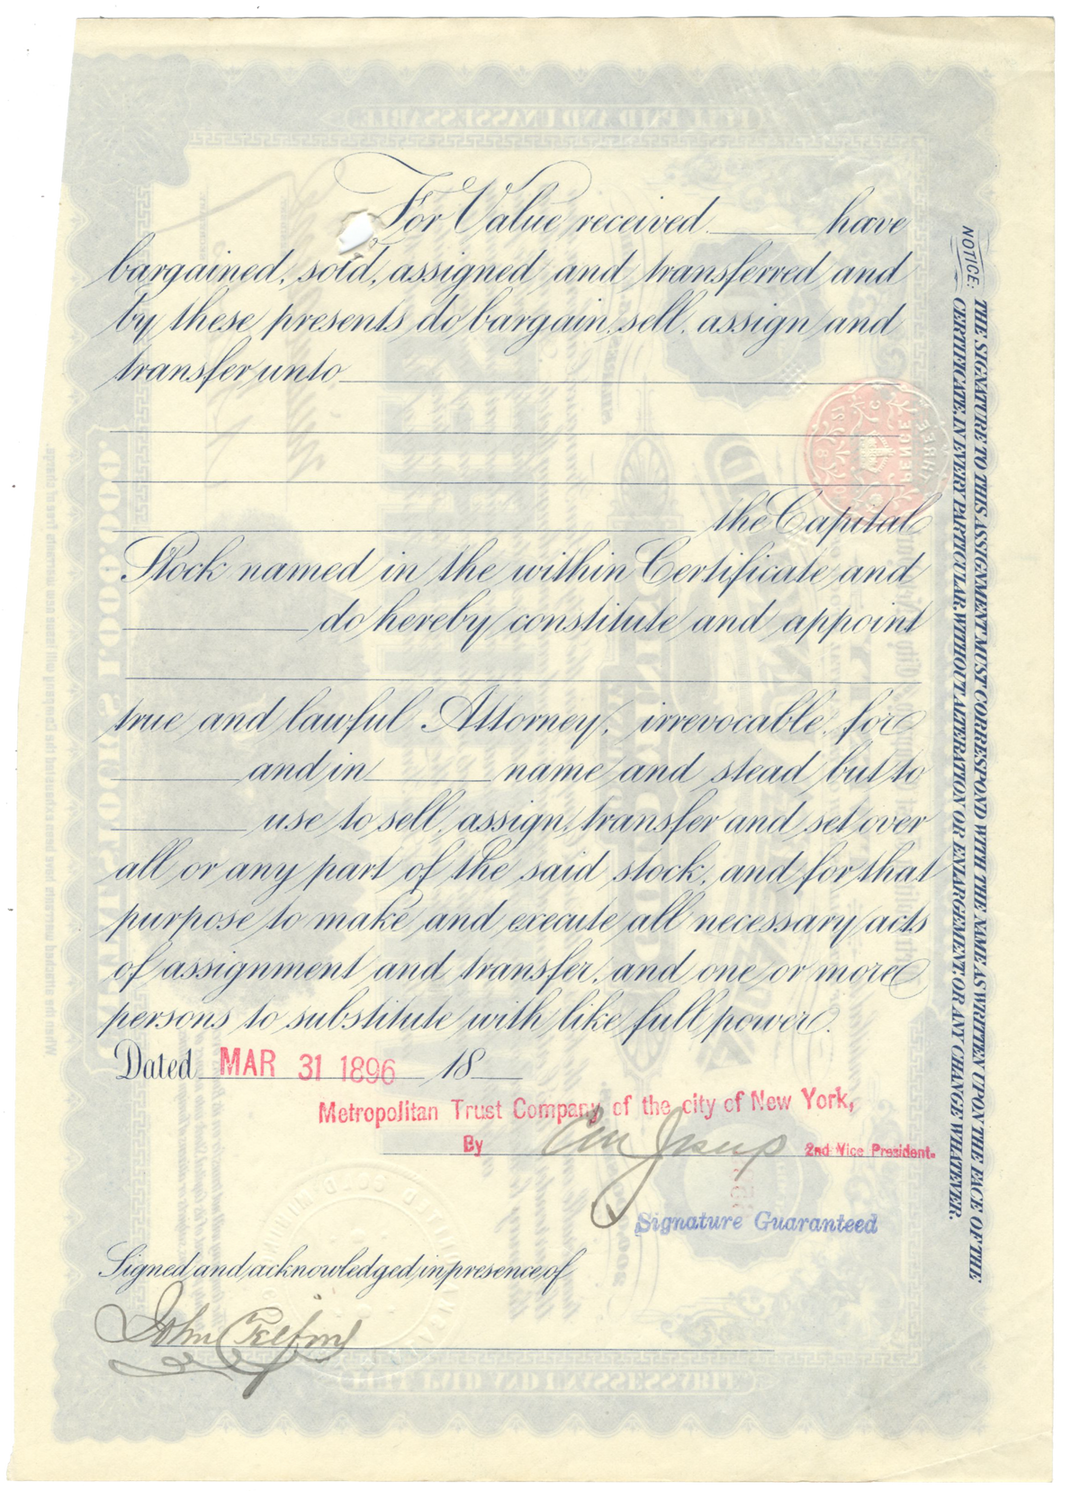 For Value received have
bargained, sold, assigned and transferred and
by these presents do bargain, sell, assign and
transfer unto
the Capital
Stock named in the within Certificate and
do hereby constitute and appoint
true and lawful Attorney, irrevocable for
and in name and stead but to
use to sell, assign, transfer and set over
all or any part of the said stock, and for that
purpose to make and execute all necessary acts
of assignment and transfer, and one or more
persons to substitute with like full power.
Dated MAR 31 1896 18
Metropolitan Trust Company of the city of New York,
By Jesup 2nd Vice President.
Signature Guaranteed
Signed and acknowledged in presence of
John
NOTICE: THE SIGNATURE TO THIS ASSIGNMENT MUST CORRESPOND WITH THE NAME AS WRITTEN UPON THE FACE OF THE
CERTIFICATE, IN EVERY PARTICULAR, WITHOUT ALTERATION OR ENLARGEMENT OR ANY CHANGE WHATEVER.
THREE PENCE
FULL PAID AND UNASSESSABLE
FULL PAID AND UNASSESSABLE